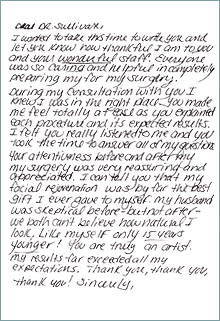 Dear Dr. Sullivan:
I wanted to take this time to write you and
let you know how thankful I am to you
and your wonderful staff. Everyone
was so caring and helpful in completely
preparing my for my surgery.
During my consultation with you I
knew I was in the right place. You made
me feel totally at ease as you explained
each procedure and its expected results.
I felt you really listened to me and you
took the time to answer all of my questions.
Your attentiveness before and after my
my surgery was very reassuring and
appreciated. I can tell you that my
facial rejuvenation was by far the best
gift I ever gave to myself. my husband
was skeptical before - but not after -
we both can't believe how natural I
look. Like myself only 15 years
younger! You are truly an artist.
my results far exceeded all my
expectations. Thank you, thank you,
thank you! Sincerely,